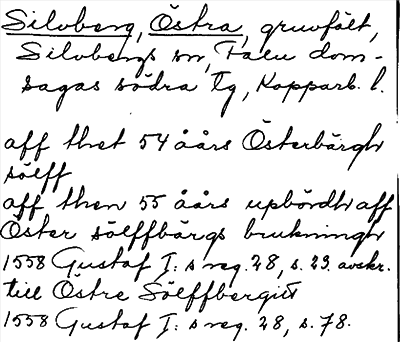 Silvberg, Östra, gruvfält,
Silvbergs sn, Falu dom-
sagas södra tg, Kopparb. l.
aff thet 54 åårs Österbärgh
sölff
aff then 55 åårs upbördh aff
Öster sölffbärgs brukningh
1558 Gustaf I:s reg. 28, s. 23. avskr.
till Östre Sölffbergit
1558 Gustaf I:s reg. 28, s. 78.